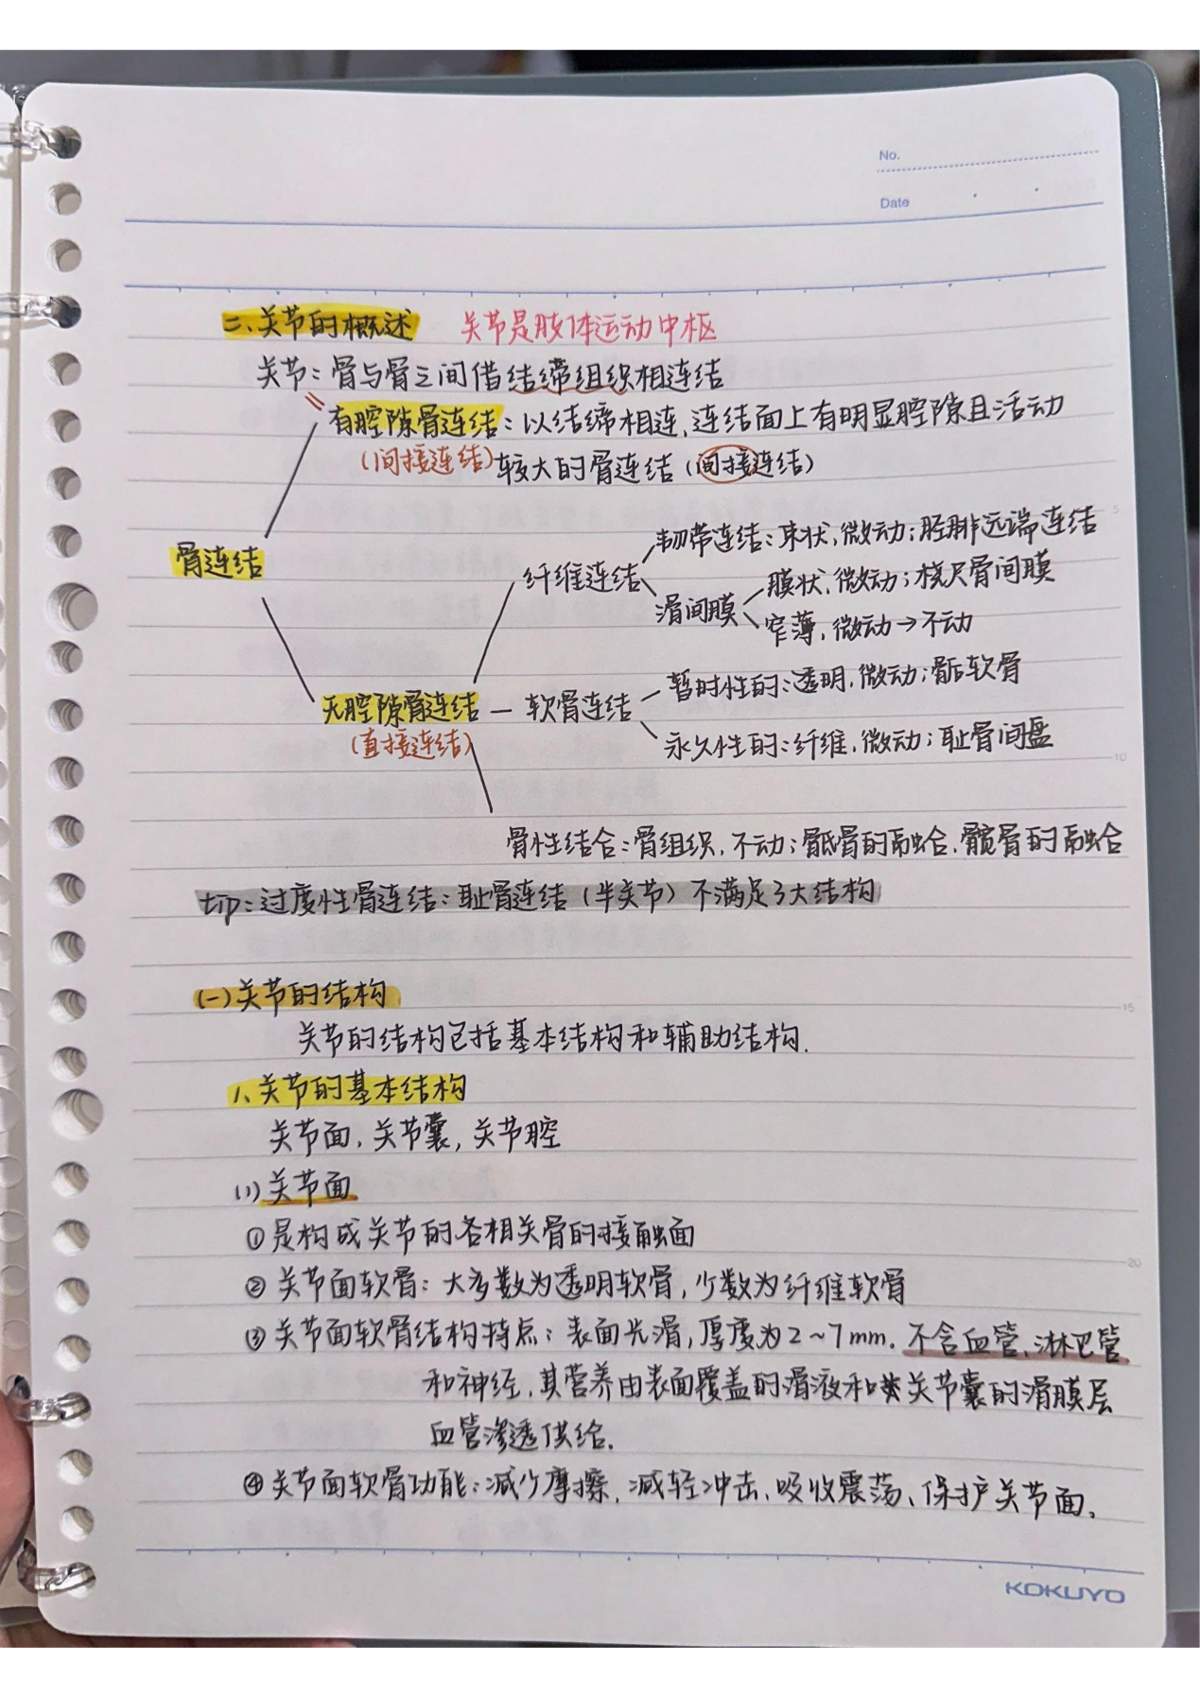 No.
Date
二、关节的概述 关节是肢体运动中枢
关节：骨与骨之间借结缔组织相连结
有腔隙骨连结：以结缔相连、连结面上有明显腔隙且活动
(间接连结) 较大的骨连结（间接连结）
韧带连结：束状，微动；胫腓远端连结
骨连结 纤维连结
滑间膜 膜状，微动；桡尺骨间膜
窄薄，微动→不动
暂时性的：透明，微动；骺软骨
无腔隙骨连结 — 软骨连结
(直接连结) 永久性的：纤维，微动；耻骨间盘
骨性结合：骨组织，不动；骶骨的融合，髋骨的融合
tip：过度性骨连结：耻骨连结（半关节）不满足3大结构
(一)关节的结构
关节的结构包括基本结构和辅助结构.
1、关节的基本结构
关节面，关节囊，关节腔
(1)关节面
①是构成关节的各相关骨的接触面
② 关节面软骨：大多数为透明软骨，少数为纤维软骨
③关节面软骨结构特点：表面光滑，厚度为2~7mm. 不含血管、淋巴管
和神经，其营养由表面覆盖的滑液和关节囊的滑膜层
血管渗透供给.
④关节面软骨功能：减少摩擦，减轻冲击、吸收震荡、保护关节面.
5
10
15
20
KOKUYO